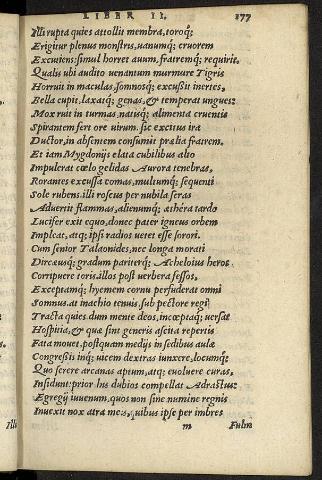 LIBER II. 177
Illi rupta quies attollit membra, toroq;
Erigitur plenus monstris, uanumq; cruorem
Excutiens: simul horret auum, fratremq; requirit.
Qualis ubi audito uenantum murmure Tigris
Horruit in maculas, somnosq; excussit inertes,
Bella cupit, laxatq; genas, & temperat ungues:
Mox ruit in turmas, natisq; alimenta cruentis
Spirantem fert ore uirum. sic excitus ira
Ductor, in absentem consumit prælia fratrem.
Et iam Mygdonijs elata cubilibus alto
Impulerat cœlo gelidas Aurora tenebras,
Rorantes excussa comas, multumq; sequenti
Sole rubens. illi roseus per nubila seras
Aduertit flammas, alienumq; æthera tardo
Lucifer exit equo, donec pater igneus orbem
Impleat, atq; ipsi radios uetet esse sorori.
Cum senior Talaonides, nec longa morati
Dircæusq; gradum pariterq; Acheloius heros
Corripuere toris. illos post uerbera fessos,
Exceptamq; hyemem cornu perfuderat omni
Somnus. at inachio tenuis, sub pectore regi
Tracta quies dum mente deos, inceptaq; uersat
Hospitia, & quæ sint generis ascita repertis
Fata mouet. postquam medijs in sedibus aulæ
Congressi inq; uicem dextras iunxere, locumq;
Quo serere arcanas aptum, atq; euoluere curas,
Insidunt: prior his dubios compellat Adrastus:
Egregij iuuenum, quos non sine numine regnis
Inuexit nox atra meis, quibus ipse per imbres
Illi m Fulm